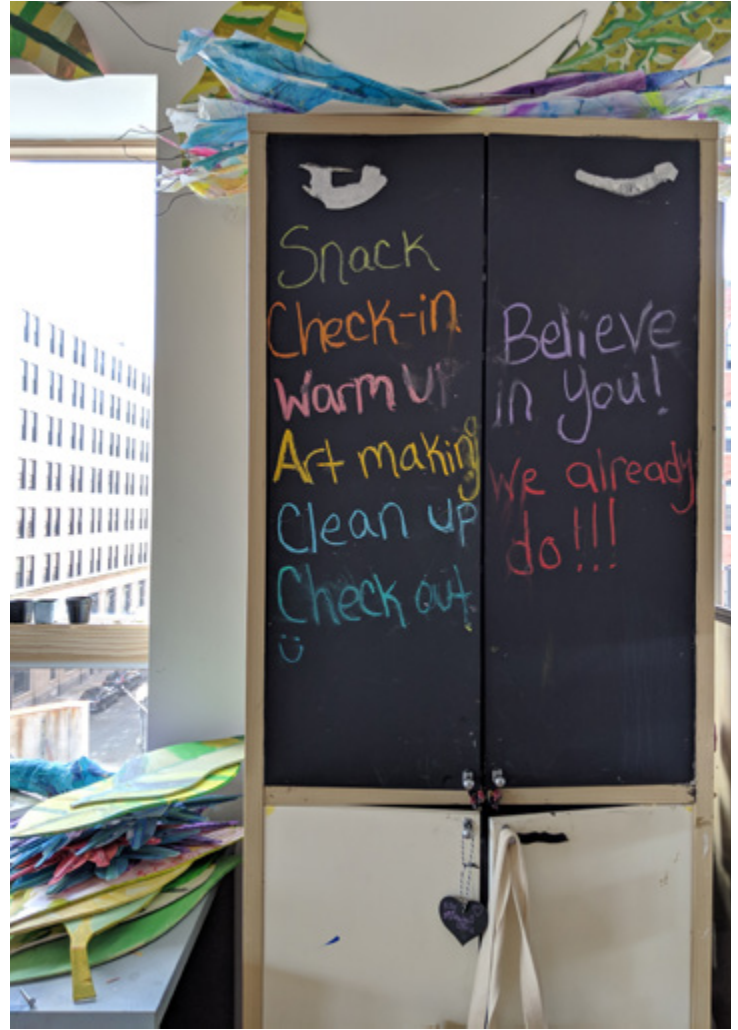 Snack
Check-in
Warm up
Art making
Clean up
Check out
Believe
in you!
We already
do!!!